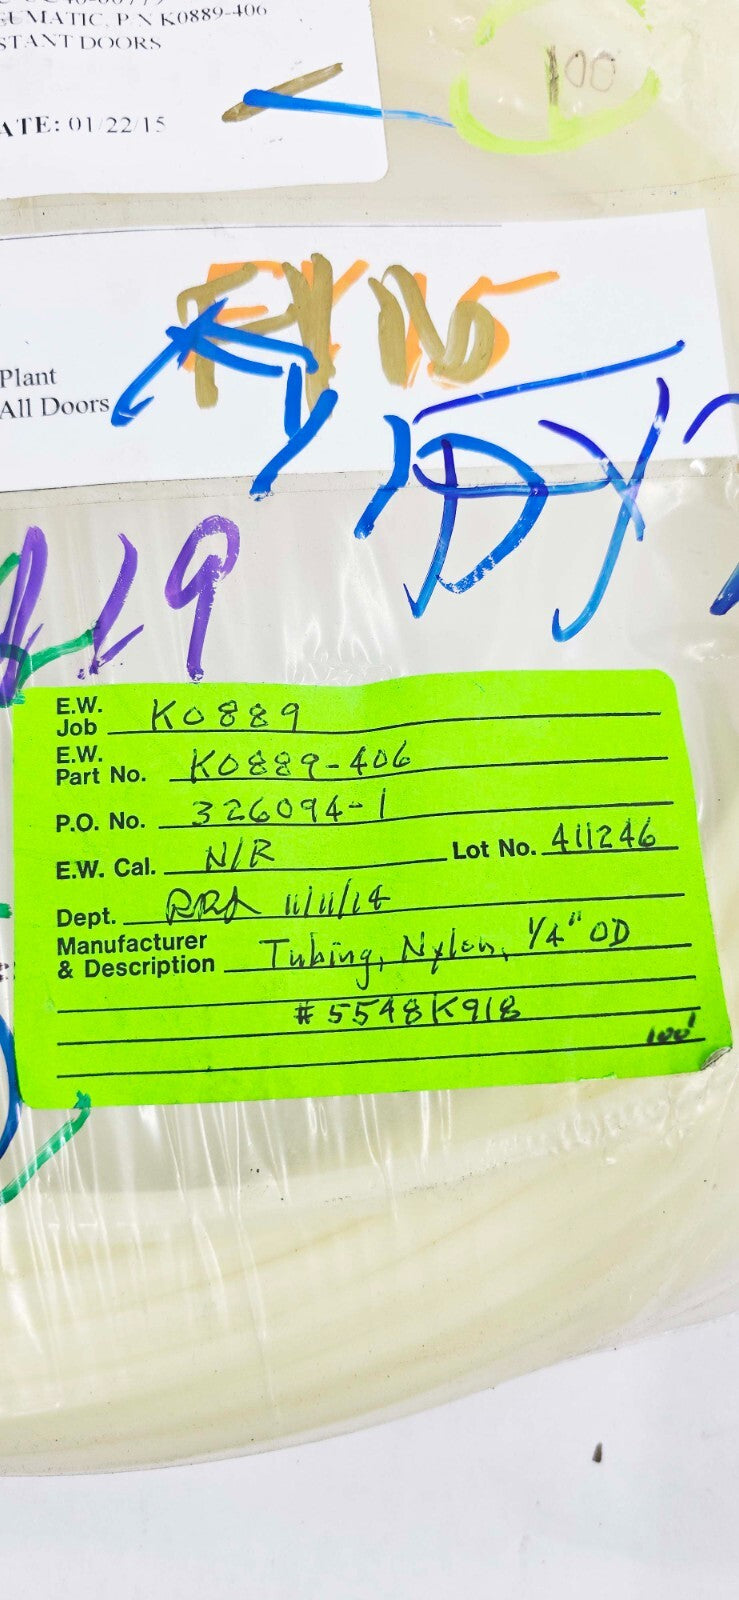 EUMATIC, P/N K0889-406
STANT DOORS
ATE: 01/22/15
100
FY15
Plant
All Doors
19
E.W. Job K0889
E.W. Part No. K0889-406
P.O. No. 326094-1
E.W. Cal. N/R Lot No. 411246
Dept. RRA 11/11/14
Manufacturer & Description Tubing, Nylon, 1/4" OD
#5548K918
100'